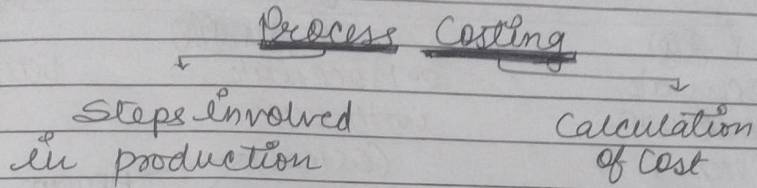 Process Costing
Steps involved
in production
Calculation
of cost